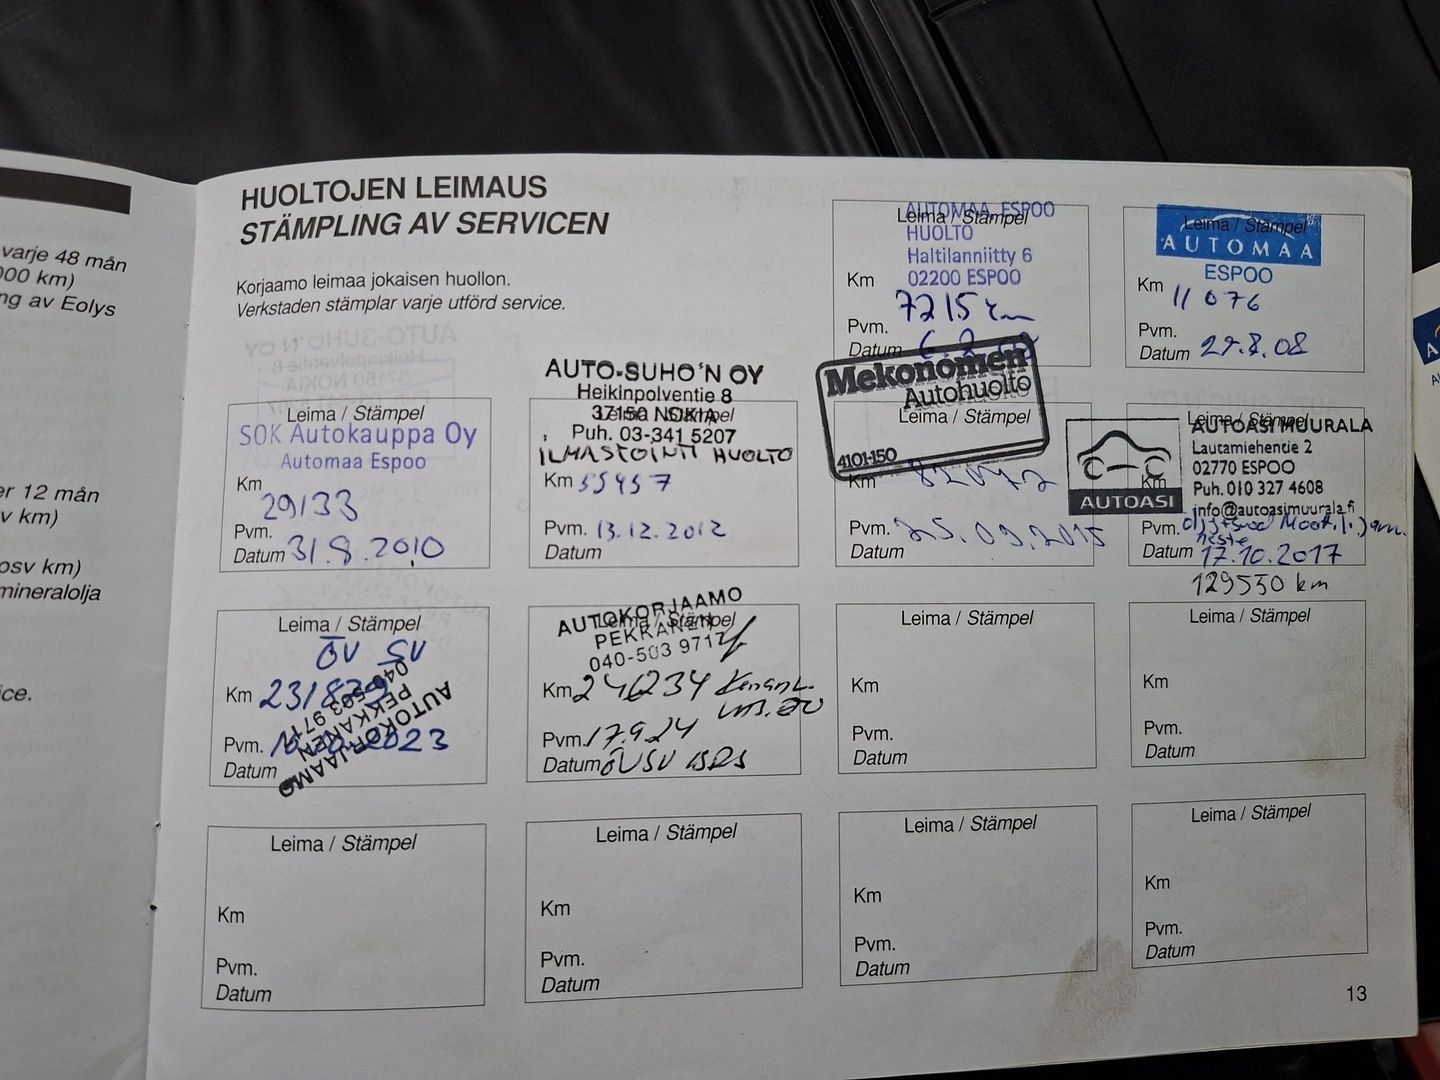 varje 48 mån
000 km)
ng av Eolys
er 12 mån
v km)
osv km)
mineralolja
ice.
HUOLTOJEN LEIMAUS
STÄMPLING AV SERVICEN
Korjaamo leimaa jokaisen huollon.
Verkstaden stämplar varje utförd service.
Leima / Stämpel
AUTOMAA ESPOO
HUOLTO
Haltilanniitty 6
02200 ESPOO
Km
7215 km
Pvm.
Datum
Leima / Stämpel
AUTOMAA
ESPOO
Km 11 076
Pvm.
Datum 27.8.08
Leima / Stämpel
SOK Autokauppa Oy
Automaa Espoo
Km
29133
Pvm.
Datum 31.8.2010
AUTO-SUHO'N OY
Heikinpolventie 8
Leima / Stämpel
37150 NOKIA
Puh. 03-341 5207
ILMASTOINTI HUOLTO
Km 55457
Pvm. 13.12.2012
Datum
Mekonomen
Autohuolto
Leima / Stämpel
4101-150
Km
Pvm. 25.09.2015
Datum
Leima / Stämpel
AUTOASI MUURALA
Lautamiehentie 2
02770 ESPOO
Puh. 010 327 4608
info@autoasimuurala.fi
AUTOASI
Km
Pvm.
Datum 17.10.2017
129550 km
Leima / Stämpel
ÖV SV
Km
Pvm.
Datum
AUTOKORJAAMO
PEKKANEN
040-503 9717
Leima / Stämpel
AUTOKORJAAMO
PEKKANEN
040-503 9717
Km 246234
Pvm. 17.9.24
Datum ÖVSV
Leima / Stämpel
Km
Pvm.
Datum
Leima / Stämpel
Km
Pvm.
Datum
Leima / Stämpel
Km
Pvm.
Datum
Leima / Stämpel
Km
Pvm.
Datum
Leima / Stämpel
Km
Pvm.
Datum
Leima / Stämpel
Km
Pvm.
Datum
13